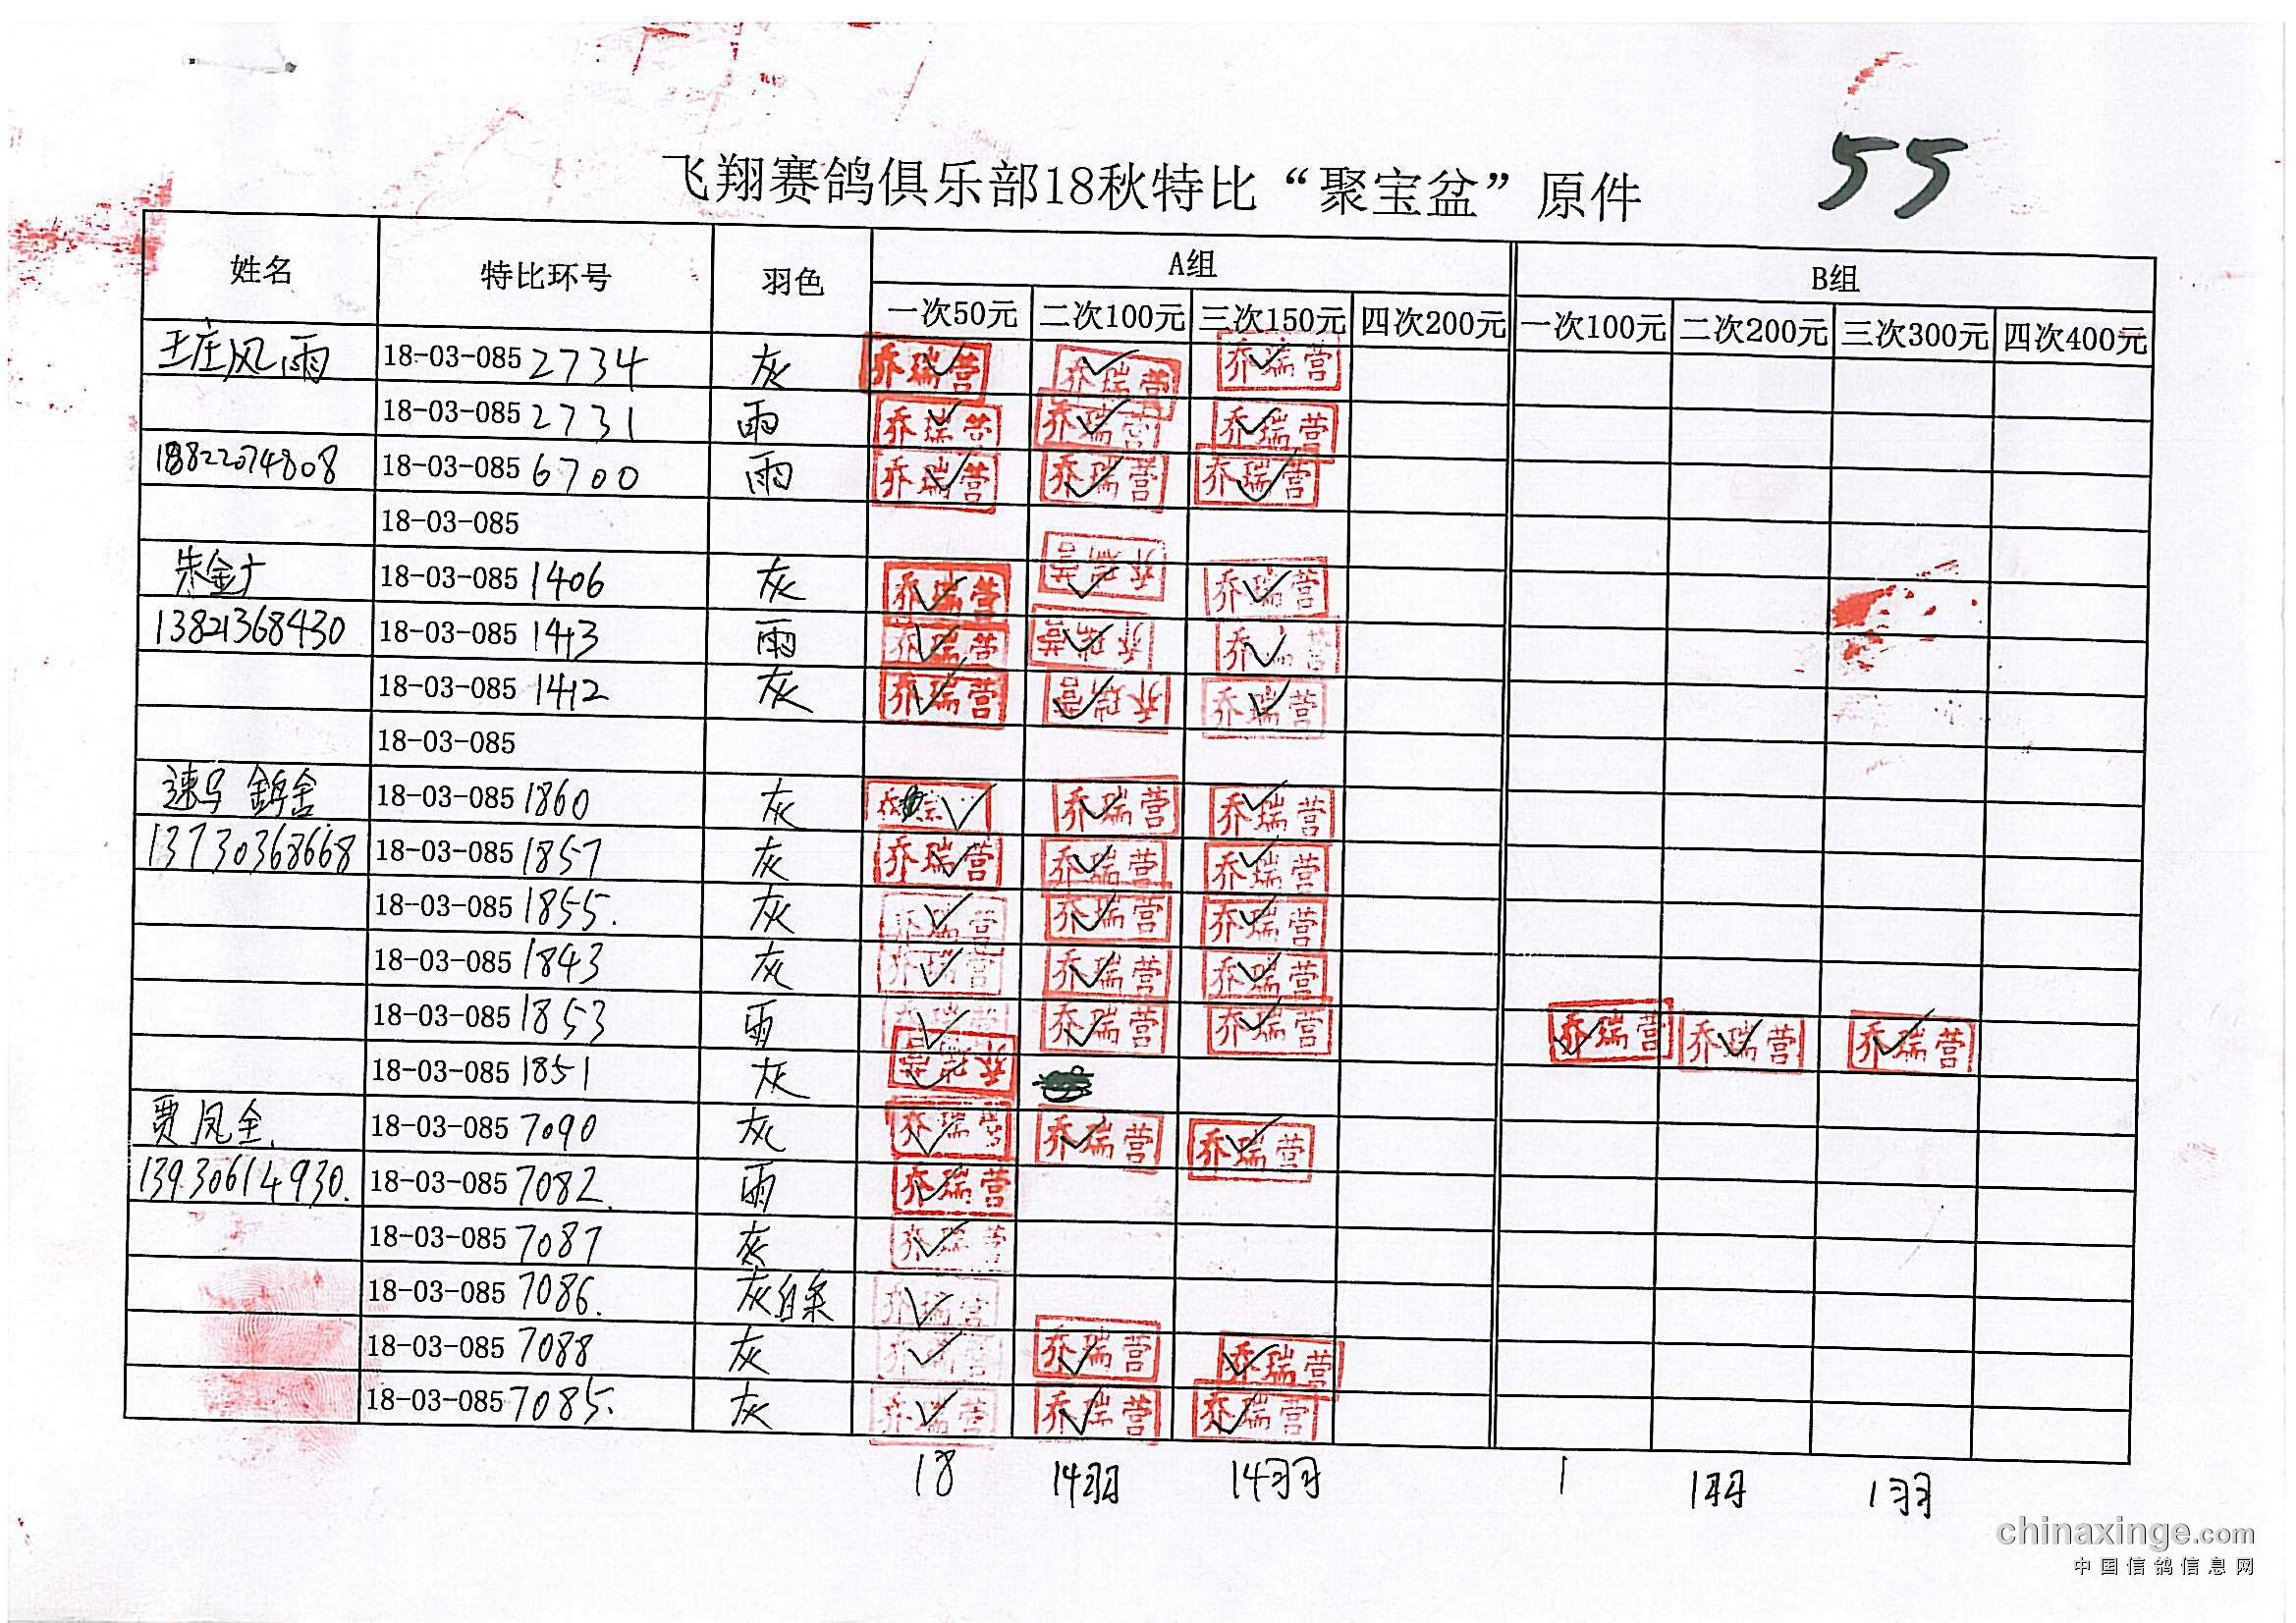 55
飞翔赛鸽俱乐部18秋特比“聚宝盆”原件
姓名 特比环号 羽色 A组 B组
一次50元 二次100元 三次150元 四次200元 一次100元 二次200元 三次300元 四次400元
王庄风雨 18-03-085 2734 灰 乔瑞营 ✓ 乔瑞营 ✓ 乔瑞营 ✓
18-03-085 2731 雨 乔瑞营 ✓ 乔瑞营 ✓ 乔瑞营 ✓
18822074808 18-03-085 6700 雨 乔瑞营 ✓ 乔瑞营 ✓ 乔瑞营 ✓
18-03-085
朱金广 18-03-085 1406 灰 乔瑞营 ✓ 乔瑞营 ✓ 乔瑞营 ✓
13821368430 18-03-085 1413 雨 乔瑞营 ✓ 乔瑞营 ✓ 乔瑞营 ✓
18-03-085 1412 灰 乔瑞营 ✓ 乔瑞营 ✓ 乔瑞营 ✓
18-03-085
速鸟 鸽舍 18-03-085 1860 灰 ✓ 乔瑞营 ✓ 乔瑞营 ✓
13730368668 18-03-085 1857 灰 乔瑞营 ✓ 乔瑞营 ✓ 乔瑞营 ✓
18-03-085 1855. 灰 乔瑞营 ✓ 乔瑞营 ✓ 乔瑞营 ✓
18-03-085 1843 灰 乔瑞营 ✓ 乔瑞营 ✓ 乔瑞营 ✓
18-03-085 1853 雨 乔瑞营 ✓ 乔瑞营 ✓ 乔瑞营 ✓ 乔瑞营 ✓ 乔瑞营 ✓ 乔瑞营 ✓
18-03-085 1851 灰 乔瑞营 ✓
贾凤全. 18-03-085 7090 灰 乔瑞营 ✓ 乔瑞营 ✓ 乔瑞营 ✓
13930614930. 18-03-085 7082. 雨 乔瑞营 ✓
18-03-085 7087 灰 乔瑞营 ✓
18-03-085 7086. 灰白条 乔瑞营 ✓
18-03-085 7088 灰 乔瑞营 ✓ 乔瑞营 ✓ 乔瑞营 ✓
18-03-085 7085. 灰 乔瑞营 ✓ 乔瑞营 ✓ 乔瑞营 ✓
18 14羽 14羽 1 1羽 1羽
chinaxinge.com
中国信鸽信息网